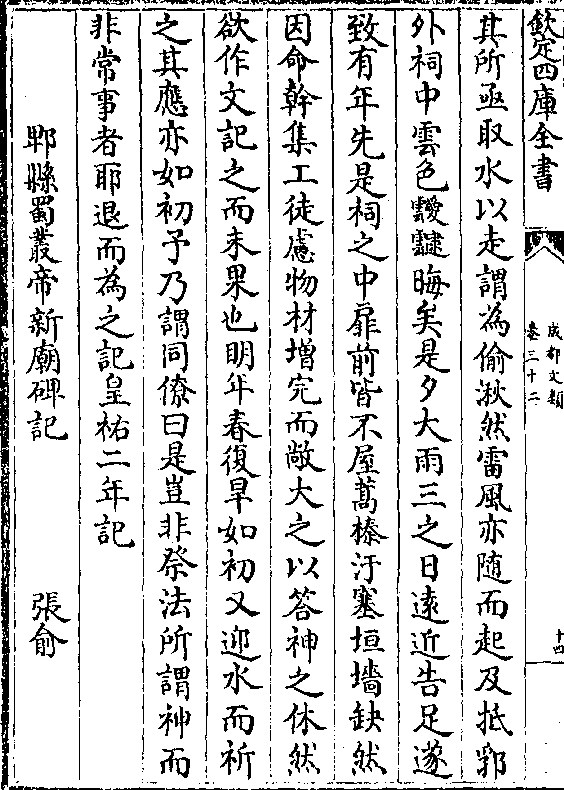 欽定四庫全書
成都文類
卷三十二
十四
其所亟取水以走謂為偷湫然雷風亦随而起及抵郛
外祠中雲色靉靆晦矣是夕大雨三之日遠近告足遂
致有年先是祠之中扉前皆不屋蒿榛汙塞垣墻缺然
因命幹集工徒慮物材増完而敞大之以答神之休然
欲作文記之而未果也明年春復旱如初又迎水而祈
之其應亦如初予乃謂同僚曰是豈非祭法所謂神而
非常事者耶退而為之記皇祐二年記
郫縣蜀叢帝新廟碑記
張俞